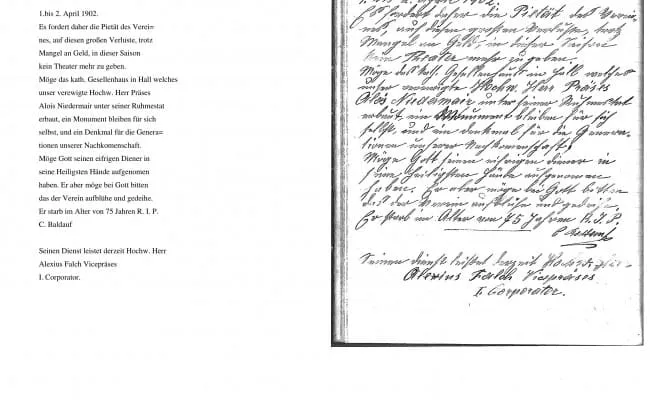 1.bis 2. April 1902.
Es fordert daher die Pietät des Verei=
nes, auf diesen großen Verluste, trotz
Mangel an Geld, in dieser Saison
kein Theater mehr zu geben.
Möge das kath. Gesellenhaus in Hall welches
unser verewigte Hochw. Herr Präses
Alois Niedermair unter seiner Ruhmestat
erbaut, ein Monument bleiben für sich
selbst, und ein Denkmal für die Genera=
tionen unserer Nachkomenschaft.
Möge Gott seinen eifrigen Diener in
seine Heiligsten Hände aufgenomen
haben. Er aber möge bei Gott bitten
das der Verein aufblühe und gedeihe.
Er starb im Alter von 75 Jahren R. I. P.
C. Baldauf
Seinen Dienst leistet derzeit Hochw. Herr
Alexius Falch Vicepräses
I. Corporator.
1. bis 2. April 1902.
Es fordert daher die Pietät des Verei-
nes, auf diesen großen Verluste, trotz
Mangel an Geld, in dieser Saison
kein Theater mehr zu geben.
Möge das kath. Gesellenhaus in Hall welches
unser verewigte Hochw. Herr Präses
Alois Niedermair unter seiner
erbaut, ein Monument bleiben für sich
selbst, und ein Denkmal für die Genera-
tionen unserer Nachkomenschaft.
Möge Gott seinen eifrigen Diener in
seine Heiligsten Hände aufgenomen
haben. Er aber möge bei Gott bitten
das der Verein aufblühe und gedeihe.
Er starb im Alter von 75 Jahren R. I. P.
Seinen Dienst leistet derzeit Hochw. Herr
Alexius Falch Vicepräses
I. Corporator.